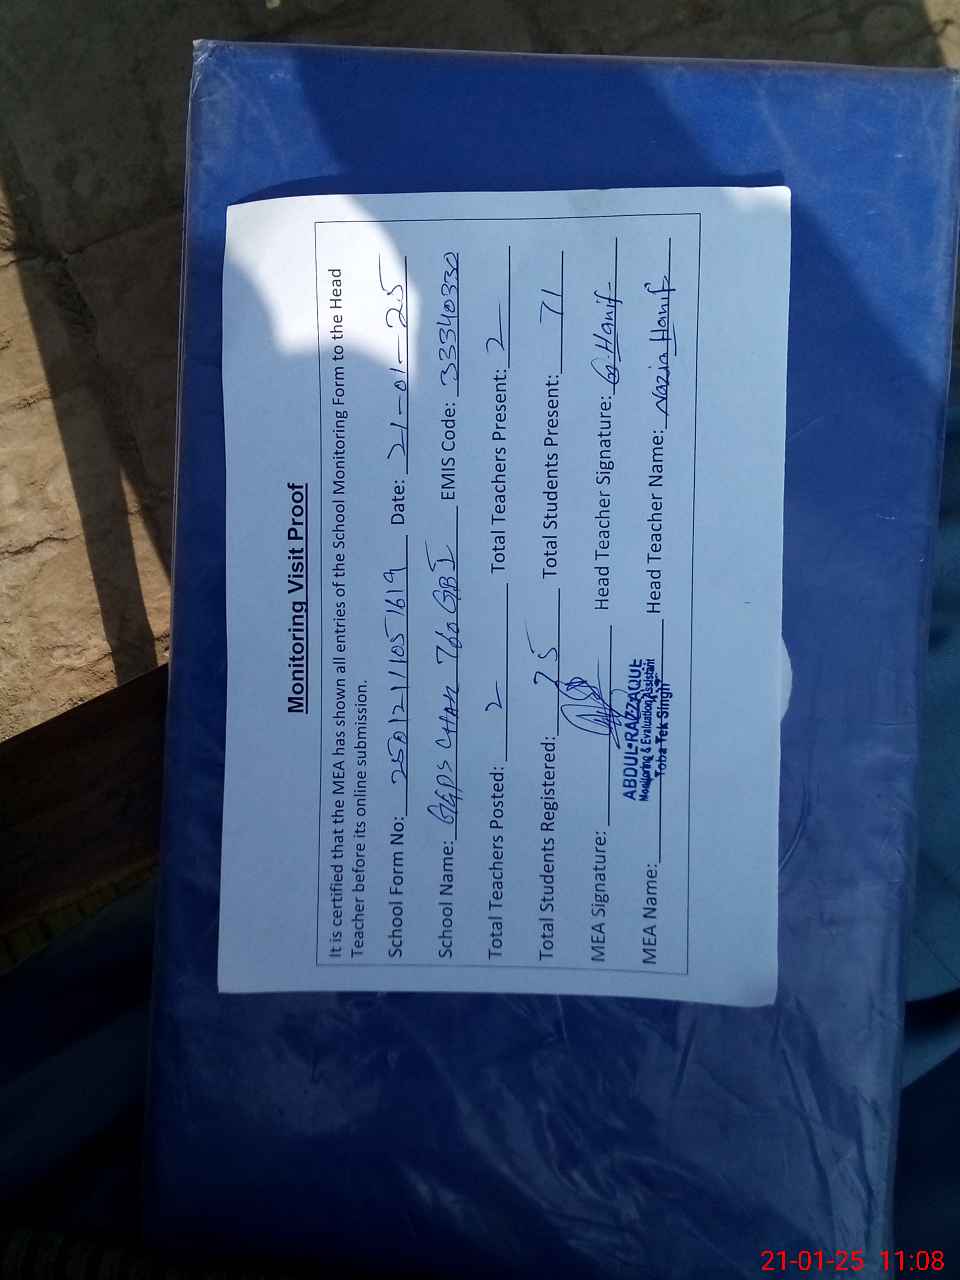 Monitoring Visit Proof
It is certified that the MEA has shown all entries of the School Monitoring Form to the Head
Teacher before its online submission.
School Form No: 25012111051619 Date: 21-01-25
School Name: GGPS CHAK 760 GB I EMIS Code: 33340330
Total Teachers Posted: 2 Total Teachers Present: 2
Total Students Registered: 75 Total Students Present: 71
MEA Signature: Head Teacher Signature: Hanif
ABDUL RAZZAQUE
Monitoring & Evaluation Assistant
Toba Tek Singh
MEA Name: Head Teacher Name: Nazia Hanif
21-01-25 11:08